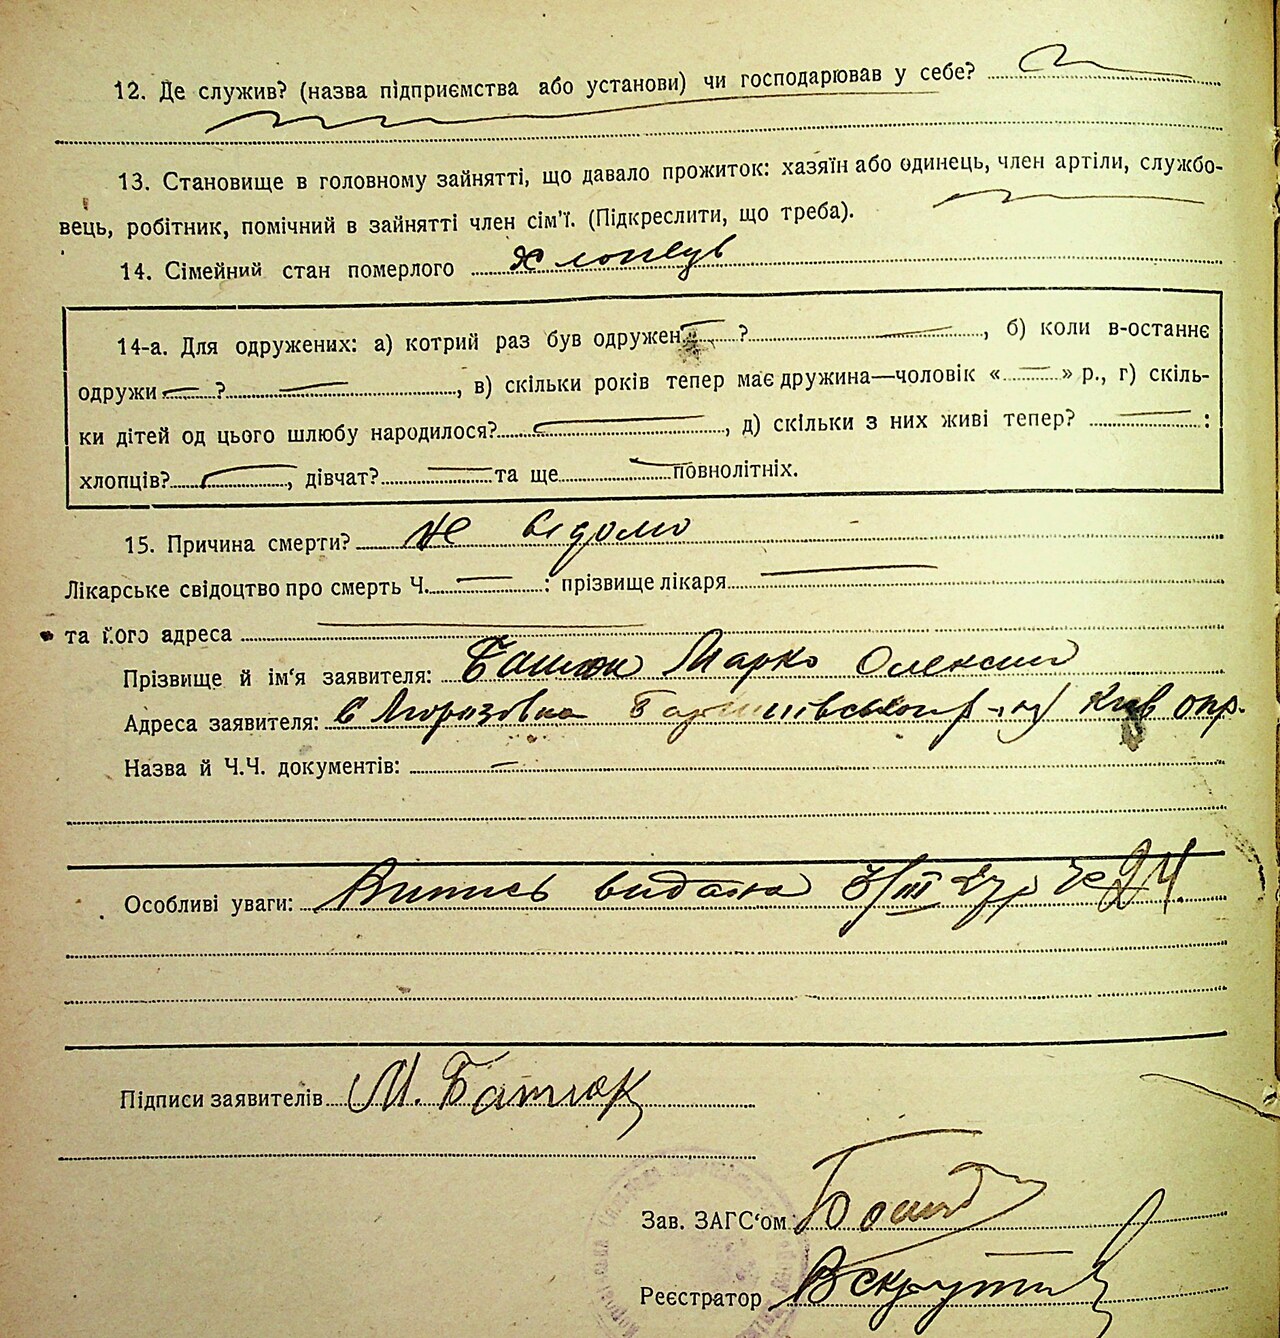 12. Де служив? (назва підприємства або установи) чи господарював у себе?
13. Становище в головному зайнятті, що давало прожиток: хазяїн або одинець, член артіли, службо-
вець, робітник, помічний в зайнятті член сім'ї. (Підкреслити, що треба).
14. Сімейний стан померлого хлопець
14-а. Для одружених: а) котрий раз був одружен ? , б) коли в-останнє
одружи ? , в) скільки років тепер має дружина—чоловік « » р., г) скіль-
ки дітей од цього шлюбу народилося? , д) скільки з них живі тепер? :
хлопців? , дівчат? та ще повнолітніх.
15. Причина смерти? Не відомо
Лікарське свідоцтво про смерть Ч. : прізвище лікаря
та його адреса
Прізвище й ім'я заявителя: Батюк Марко Олексий
Адреса заявителя: с Морозовка Київ окр.
Назва й Ч.Ч. документів:
Особливі уваги: Випись видана 3/III 27 р Ч 24
Підписи заявителів М. Батюк
Зав. ЗАГС'ом
Реєстратор